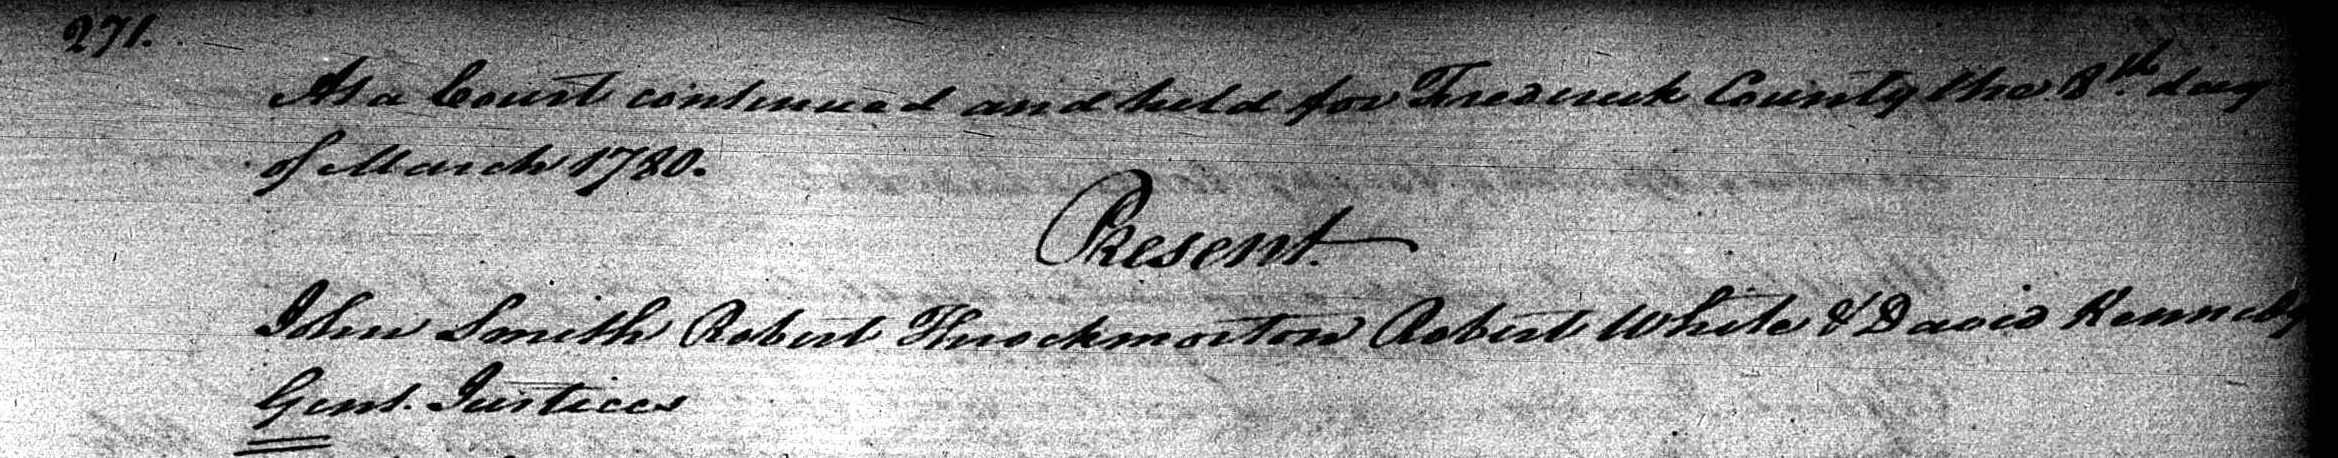 271.
At a Court continued and held for Frederick County the 8th. day
of March 1780.
Present.
John Smith Robert Throckmorton Robert White & David Kennedy
Gent. Justices